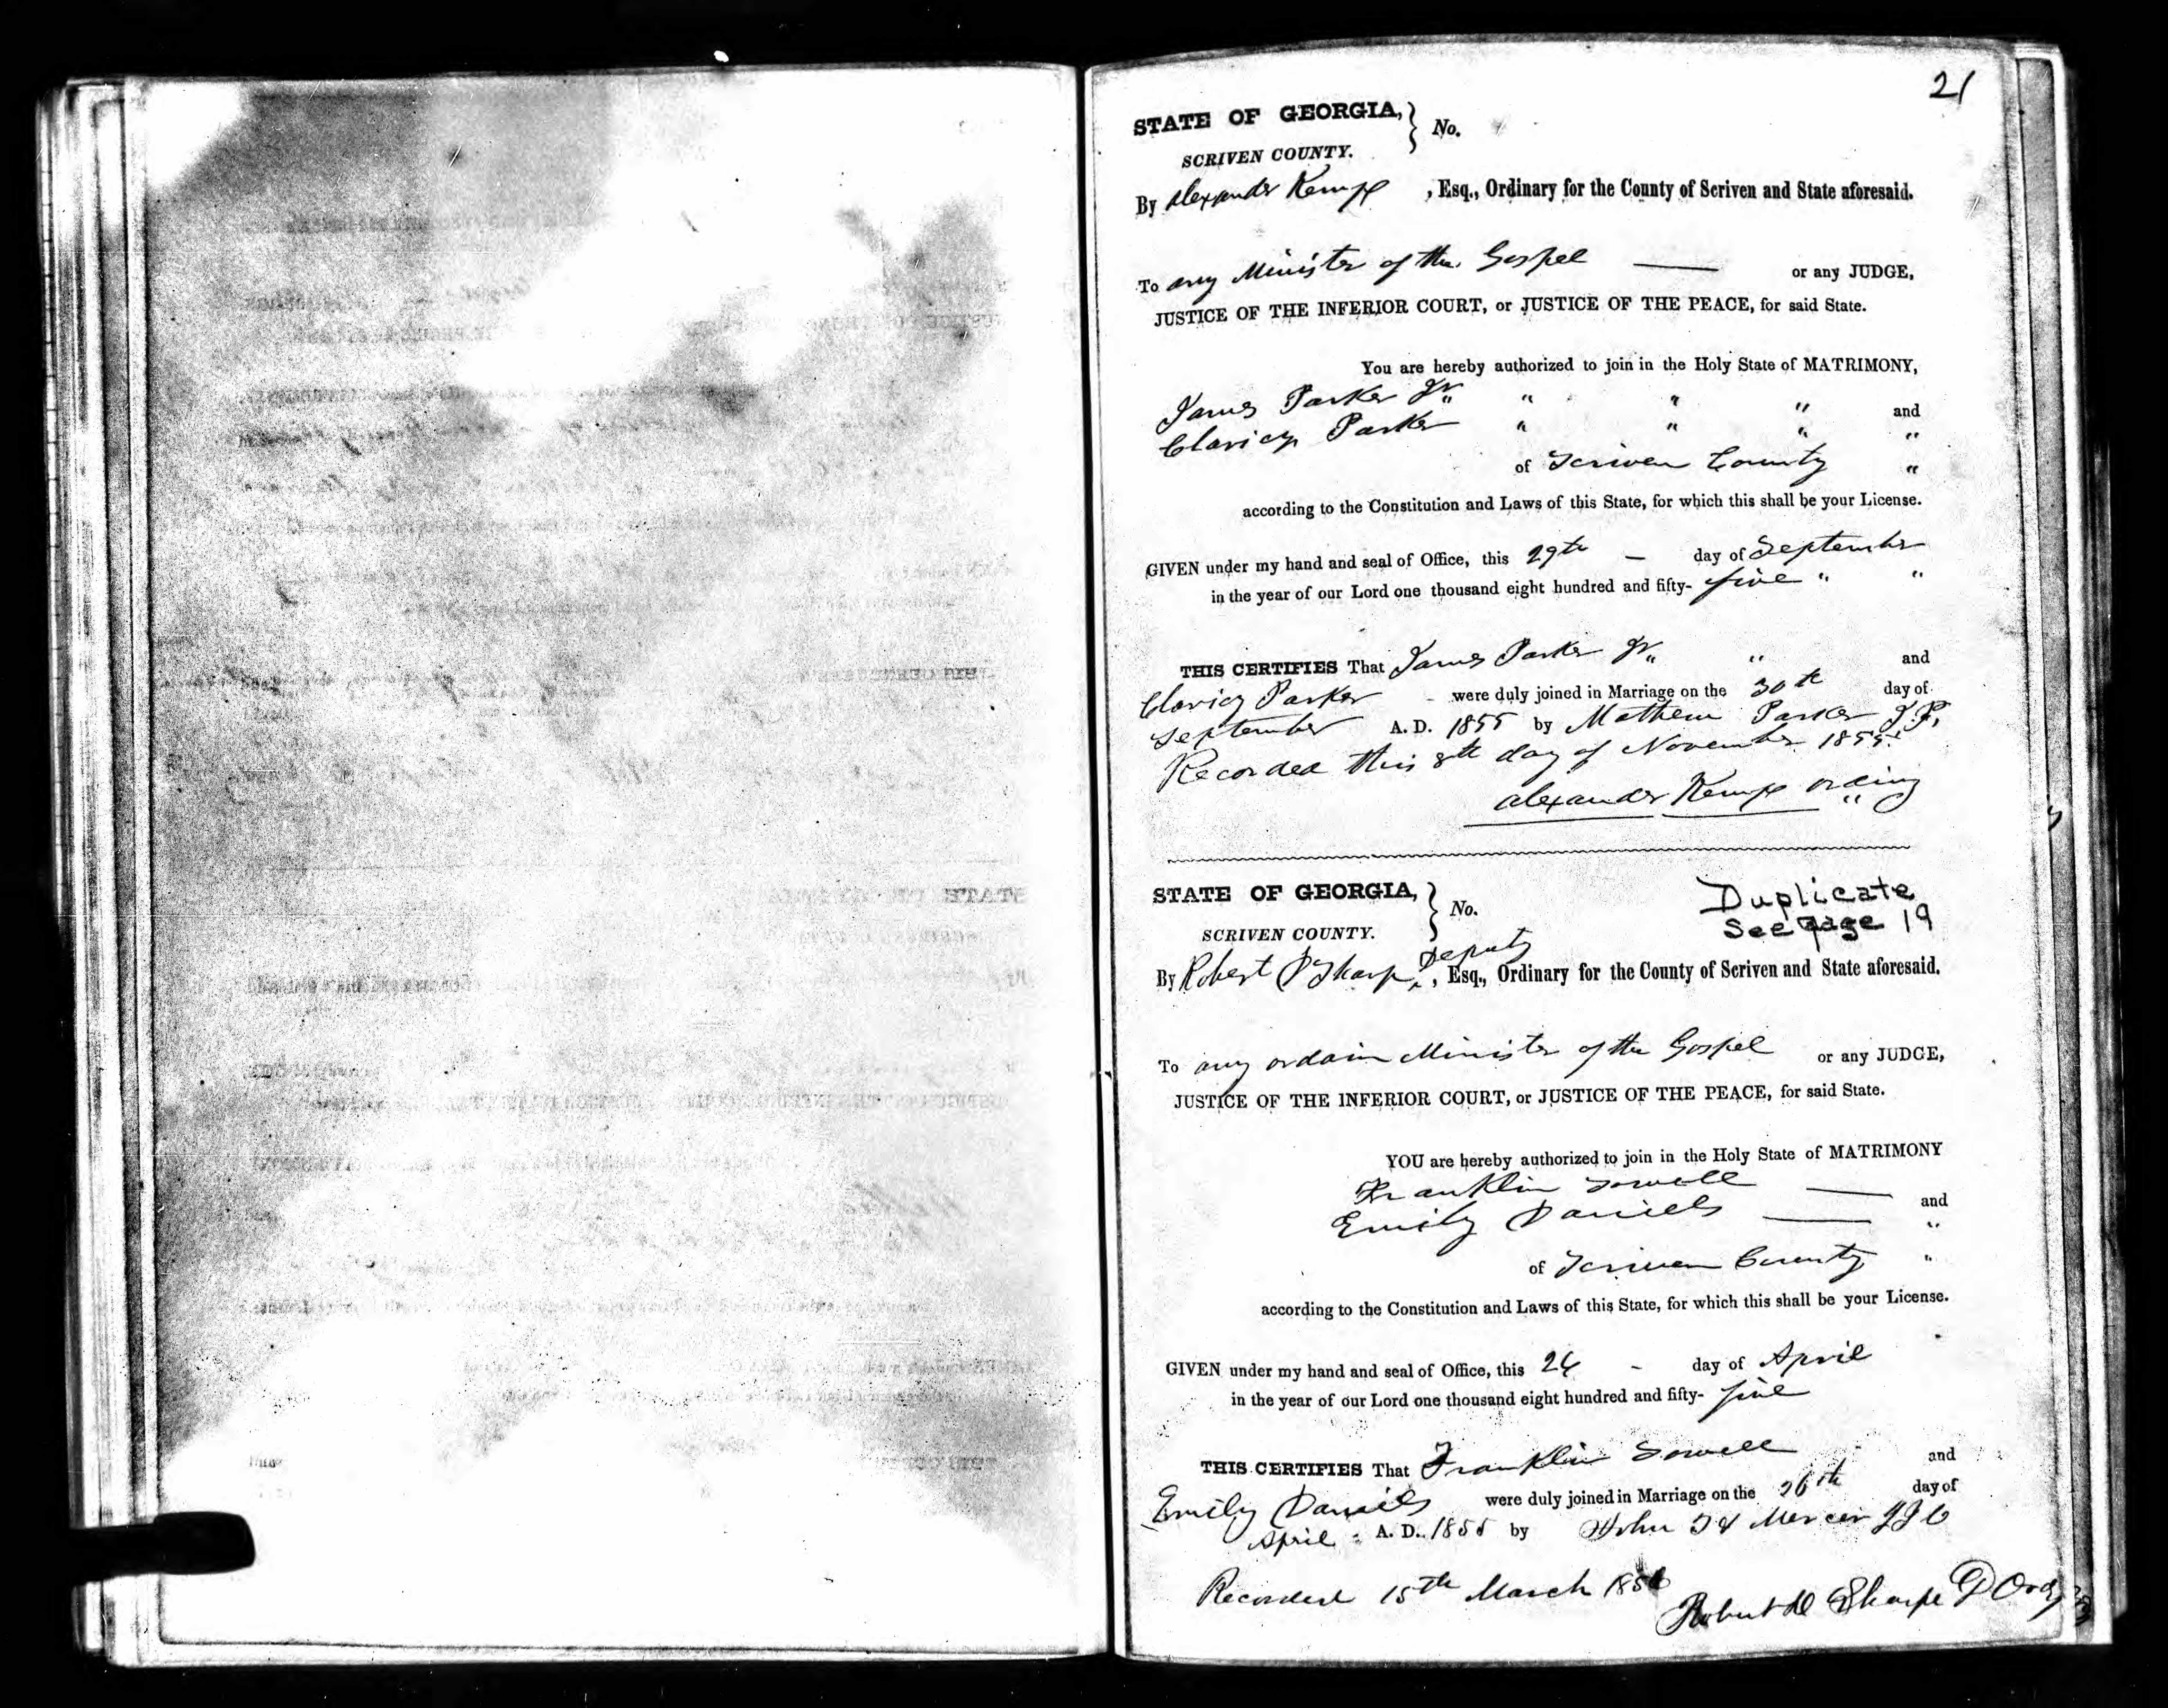 21
STATE OF GEORGIA, } No.
SCRIVEN COUNTY.
By Alexander Kemp , Esq., Ordinary for the County of Scriven and State aforesaid.
To any Minister of the Gospel — or any JUDGE,
JUSTICE OF THE INFERIOR COURT, or JUSTICE OF THE PEACE, for said State.
You are hereby authorized to join in the Holy State of MATRIMONY,
James Parker Jr. " " " and
Claricy Parker " " " "
of Scriven County "
according to the Constitution and Laws of this State, for which this shall be your License.
GIVEN under my hand and seal of Office, this 29th — day of September
in the year of our Lord one thousand eight hundred and fifty- five " "
THIS CERTIFIES That James Parker Jr. " and
Claricy Parker were duly joined in Marriage on the 30th day of
September A. D. 1855 by Mathew Parker J.P.
Recorded this 8th day of November 1855.
Alexander Kemp ordiny
STATE OF GEORGIA, } No.
Duplicate
See page 19
SCRIVEN COUNTY.
By Robert D Sharp, Deputy , Esq., Ordinary for the County of Scriven and State aforesaid.
To any ordain Minister of the Gospel or any JUDGE,
JUSTICE OF THE INFERIOR COURT, or JUSTICE OF THE PEACE, for said State.
YOU are hereby authorized to join in the Holy State of MATRIMONY
Franklin Sowell — and
Emily Daniels — "
of Scriven County "
according to the Constitution and Laws of this State, for which this shall be your License.
GIVEN under my hand and seal of Office, this 26 - day of April
in the year of our Lord one thousand eight hundred and fifty- five
THIS CERTIFIES That Franklin Sowell and
Emily Daniels were duly joined in Marriage on the 26th day of
April A. D. 1855 by John Mercer JJC
Recorded 15th March 1856
Robert D Sharpe D Ordy